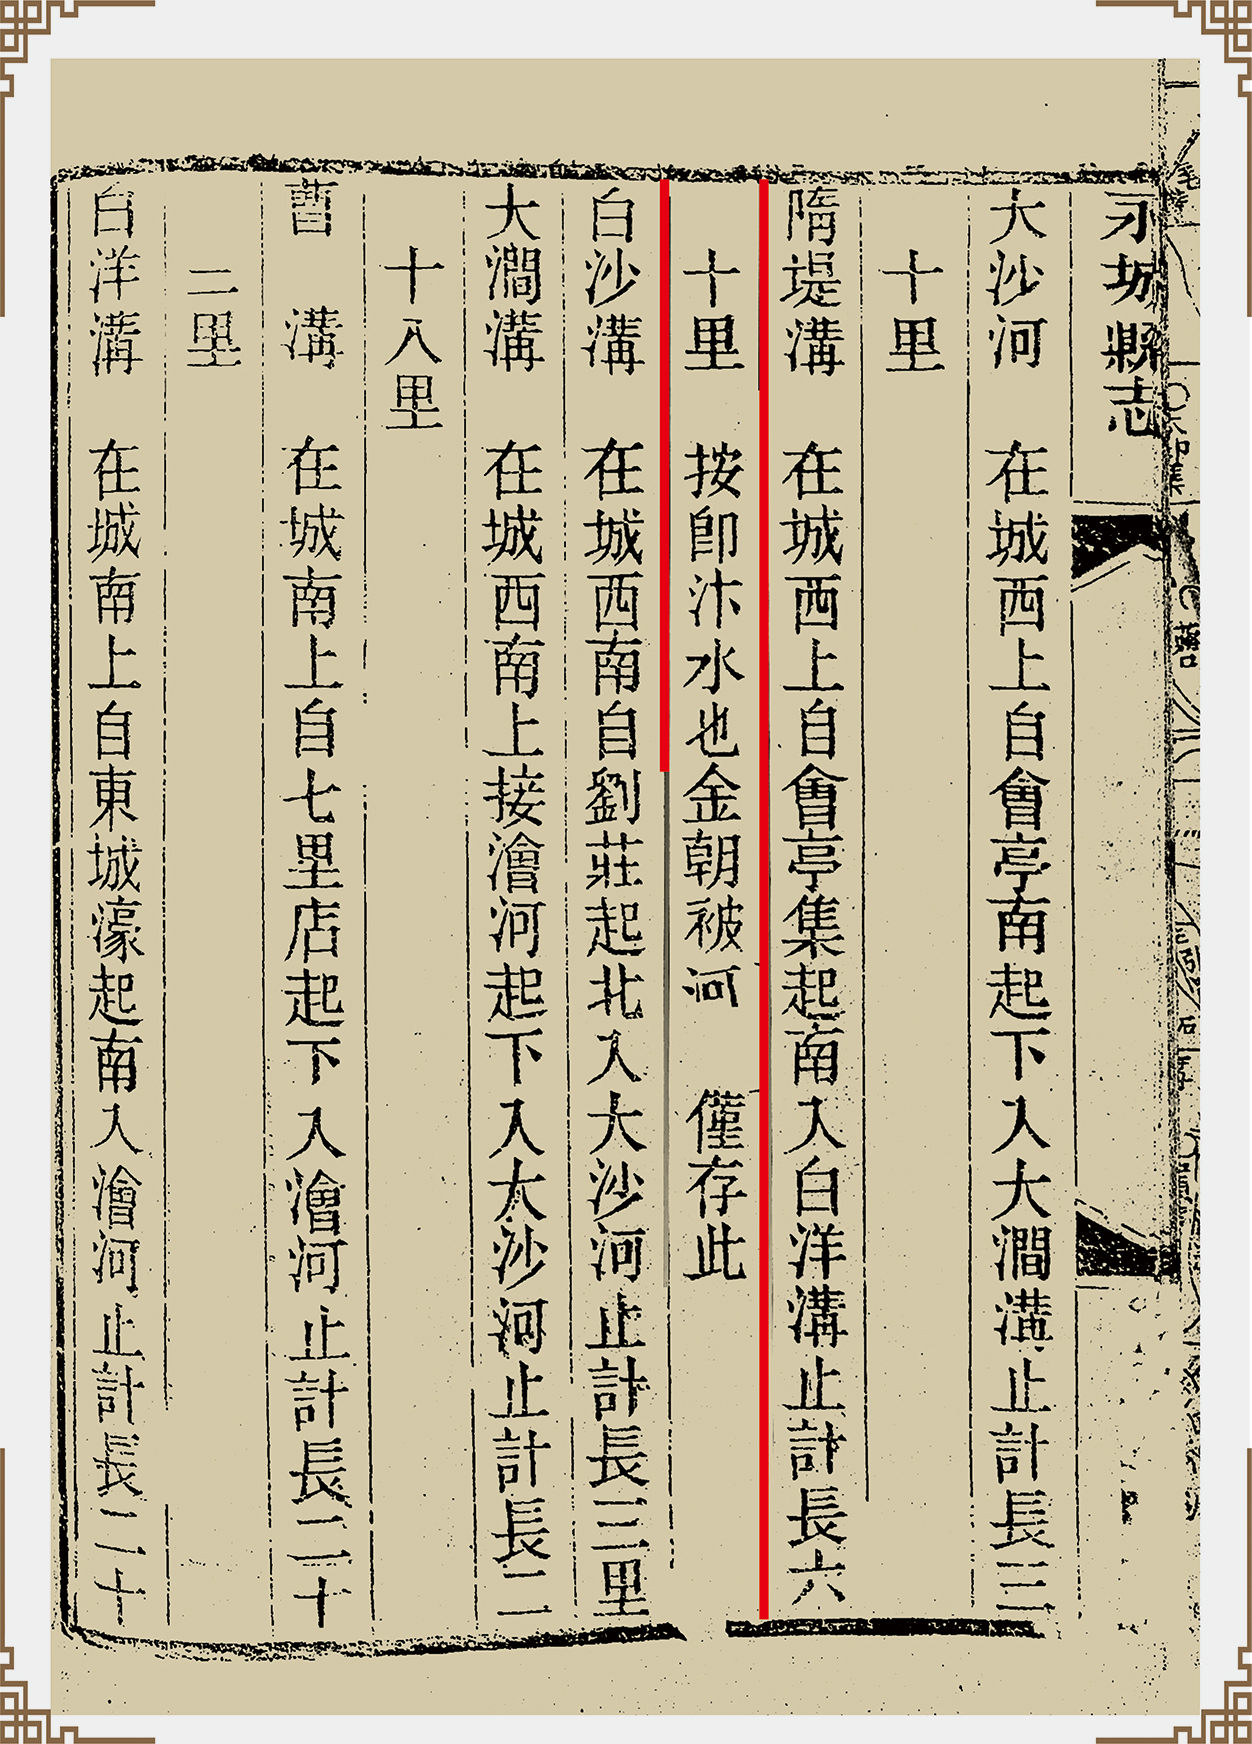 永城縣志
大沙河　在城西上自會亭南起下入大澗溝止計長三
十里
隋堤溝　在城西上自會亭集起南入白洋溝止計長六
十里　按卽汴水也金朝被河　僅存此
白沙溝　在城西南自劉莊起北入大沙河止計長三里
大澗溝　在城西南上接澮河起下入大沙河止計長二
十八里
曹　溝　在城南上自七里店起下入澮河止計長二十
二里
白洋溝　在城南上自東城濠起南入澮河止計長二十